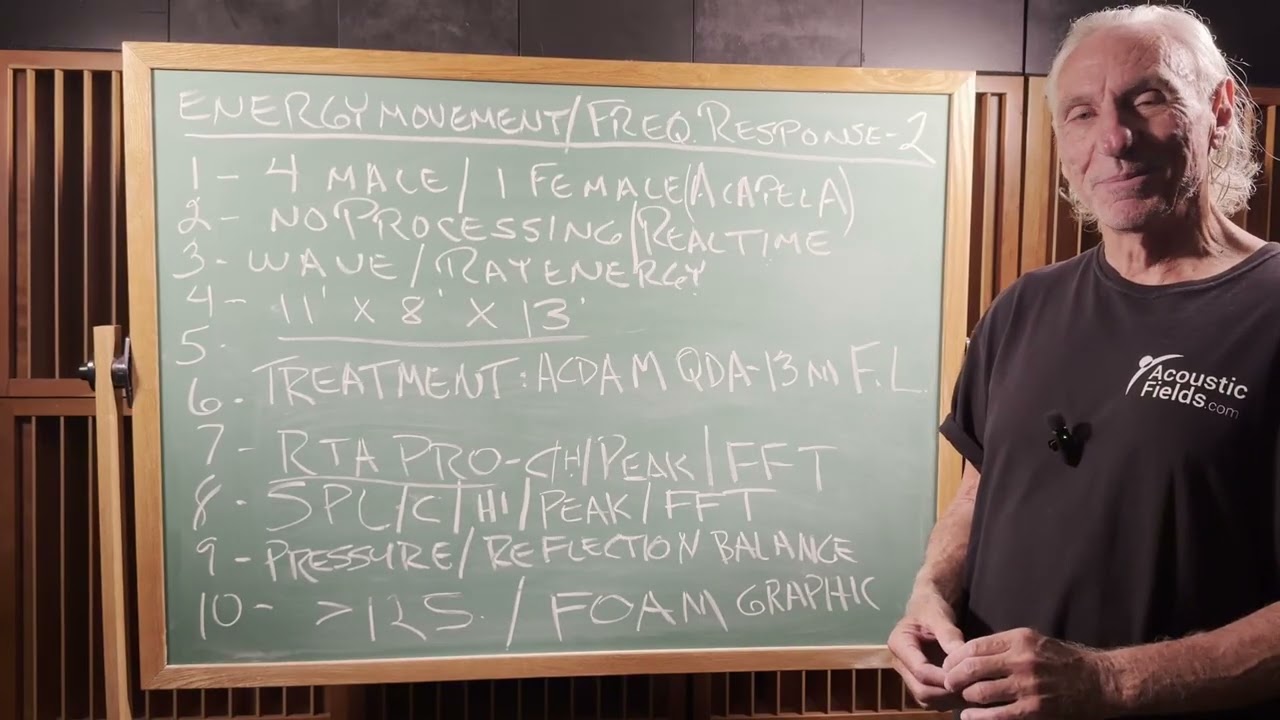 ENERGY MOVEMENT/FREQ. RESPONSE-2
1 - 4 MALE/ 1 FEMALE(ACAPELA)
2 - NO PROCESSING/REALTIME
3 - WAVE/RAY ENERGY
4 - 11' X 8' X 13'
5.
6. TREATMENT: ACDA M QDA-13 M F.L.
7 - RTA PRO-CH/PEAK/FFT
8 - SPL/C/HI/PEAK/FFT
9 - PRESSURE/REFLECTION BALANCE
10 - >125. / FOAM GRAPHIC
Acoustic
Fields.com